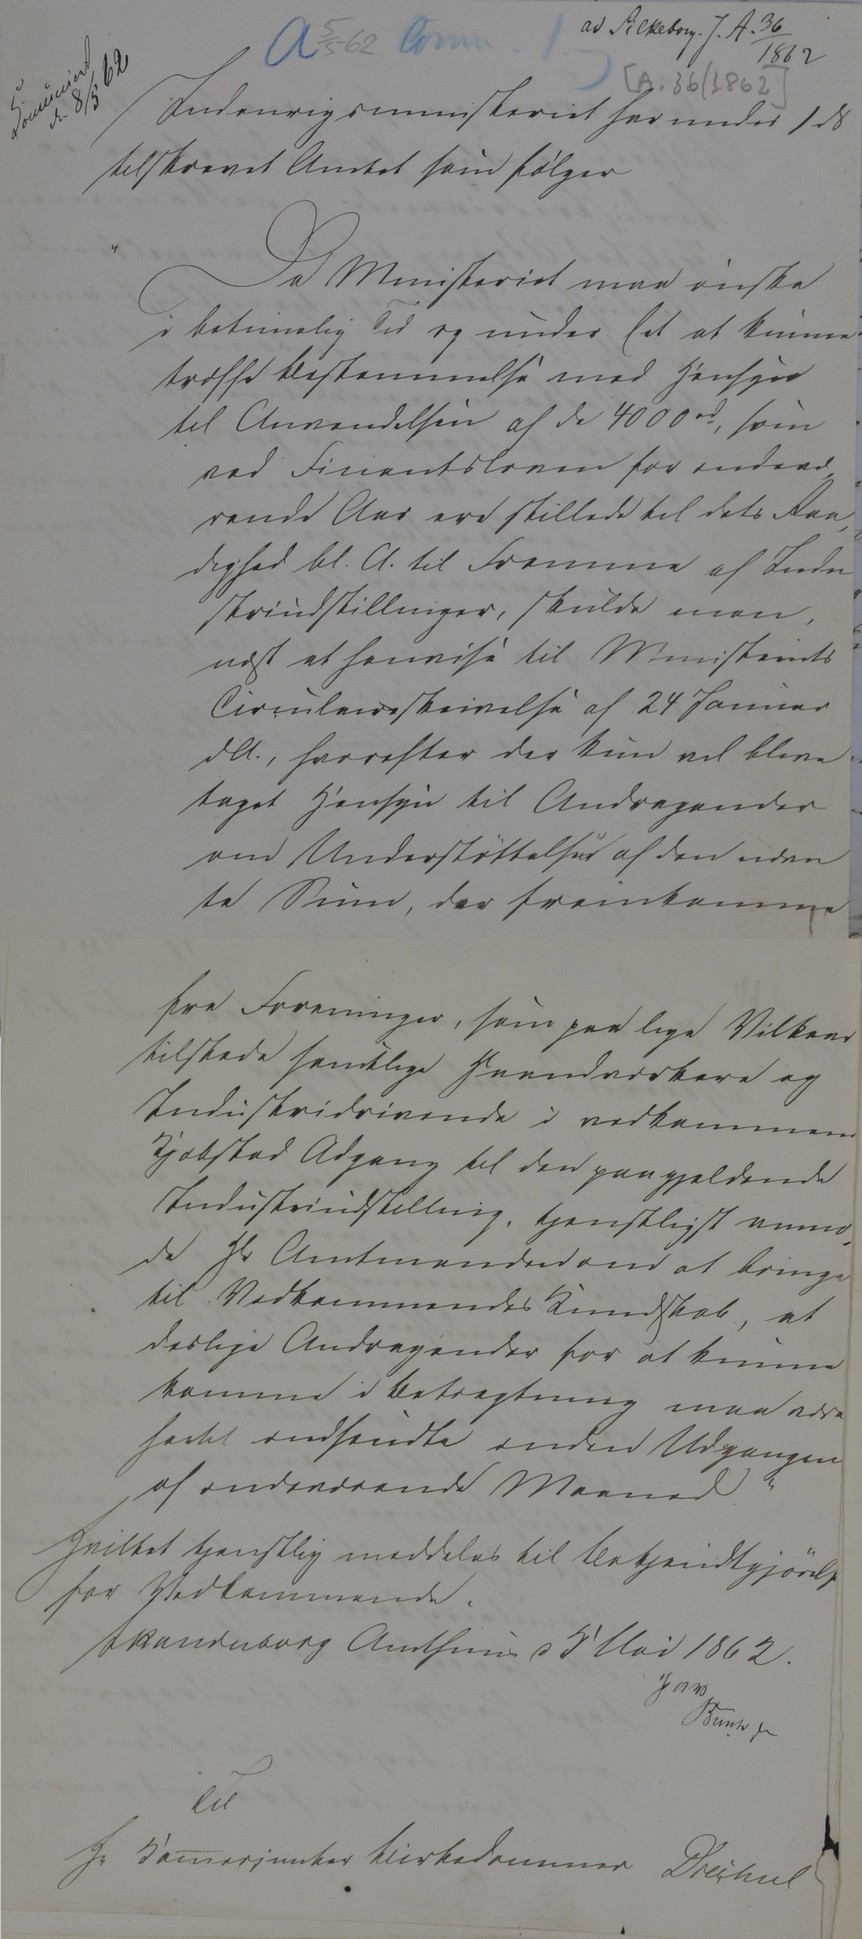 A 5/5 62 Comm.
ad Silkeborg. J. A. 36/1862
[A. 36/1862]
d. 8/5 62
Indenrigsministeriet har under 1 ds
tilskrevet Amtet som følger
"Da Ministeriet maa ønske
i betimelig Tid og under Et at kunne
træffe Bestemmelse med Hensyn
til Anvendelsen af de 4000 rd, som
ved Finantsloven for indevæ
rende Aar ere stillede til dets Raa
dighed bl. A. til Fremme af Indu
striudstillinger, skulde man,
næst at henvise til Ministeriets
Circulaireskrivelse af 24 Januar
d.A., hvorefter der kun vil blive
taget Hensyn til Andragender
om Understøttelse af den næv
te Sum, der fremkomme
fra Foreninger, som paa lige Vilkaar
tilstede samtlige Haandværkere og
Industridrivende i vedkommende
Kjøbstad Adgang til den paagjeldende
Industriudstilling, tjenstligst anmo
de Hr Amtmanden om at bringe
til Vedkommendes Kundskab, at
deslige Andragender for at kunne
komme i Betragtning maa være
hertil indsendte inden Udgangen
af indeværende Maaned"
Hvilket tjenstlig meddeles til Bekjendtgjørelse
for Vedkommende.
Skanderborg Amthuus d 5 Mai 1862.
Til
Hr Kammerjunker Birkedommer Drechsel